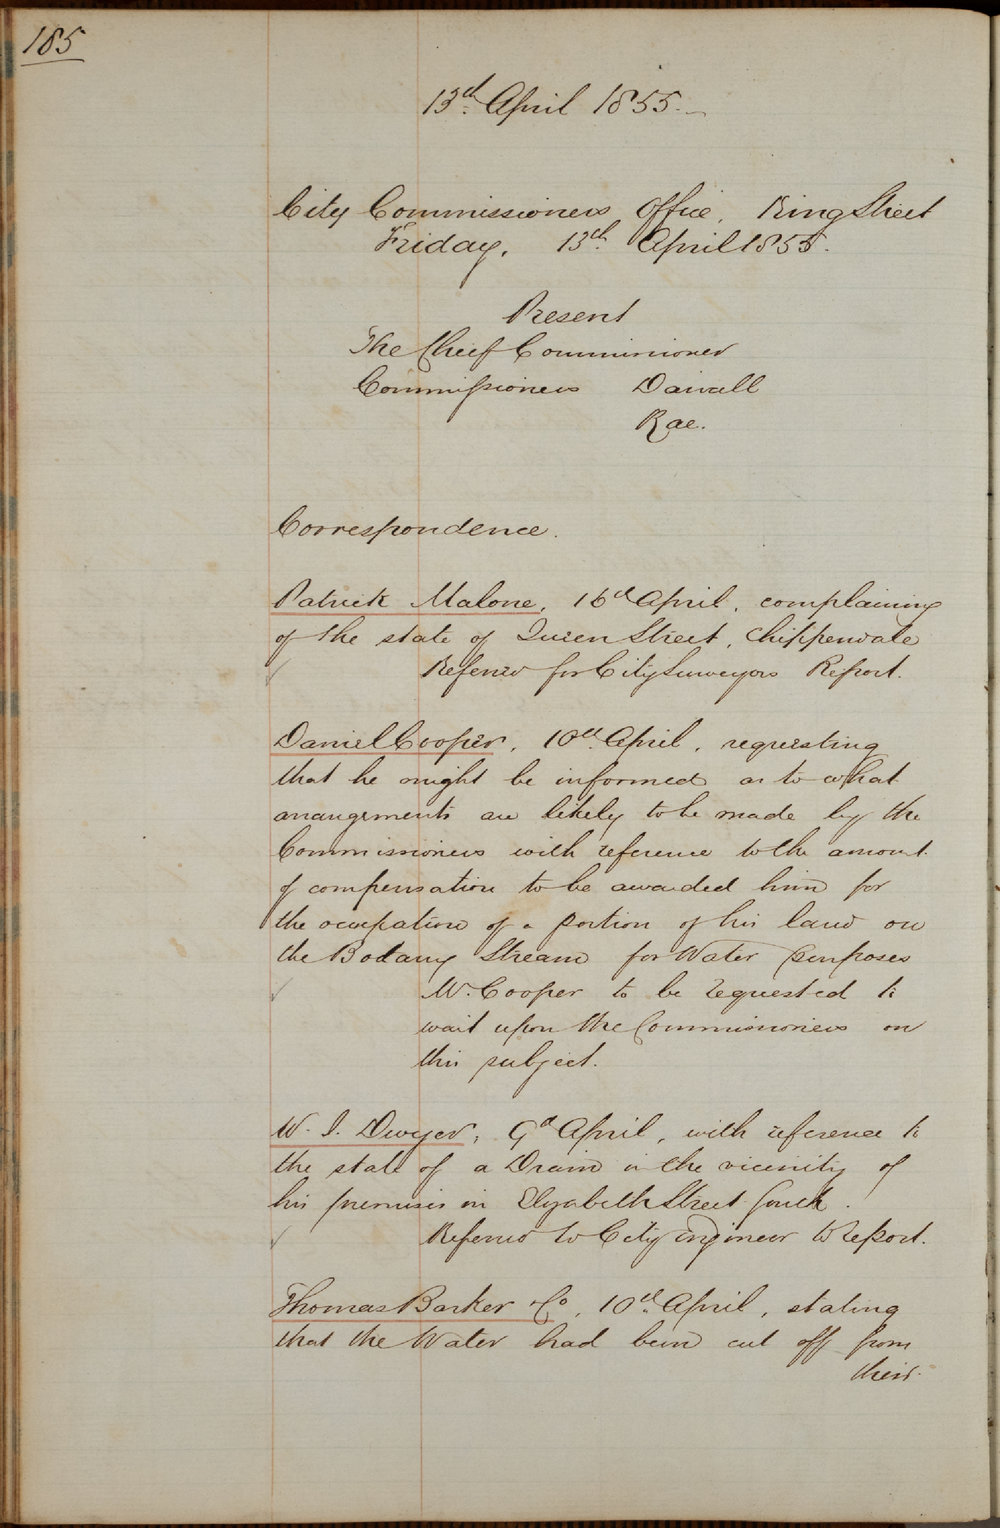 185
13th April 1855.
City Commissioners Office, King Street
Friday, 13th April 1855.
Present
The Cheif Commissioner
Commissioners Darvall
Rae.
Correspondence.
Patrick Malone, 16th April, complaining
of the state of Queen Street, Chippendale
Referred for City Surveyors Report.
Daniel Cooper, 10th April, requesting
that he might be informed as to what
arrangements are likely to be made by the
Commissioners with reference to the amount
of compensation to be awarded him for
the occupation of a portion of his land on
the Botany Stream for Water purposes
Mr. Cooper to be requested to
wait upon the Commissioners on
this subject.
W. I. Dwyer, 9th April, with reference to
the state of a Drain in the vicinity of
his premises in Elizabeth Street South.
Referred to City Engineer to report.
Thomas Barker & Co, 10th April, stating
that the Water had been cut off from
their